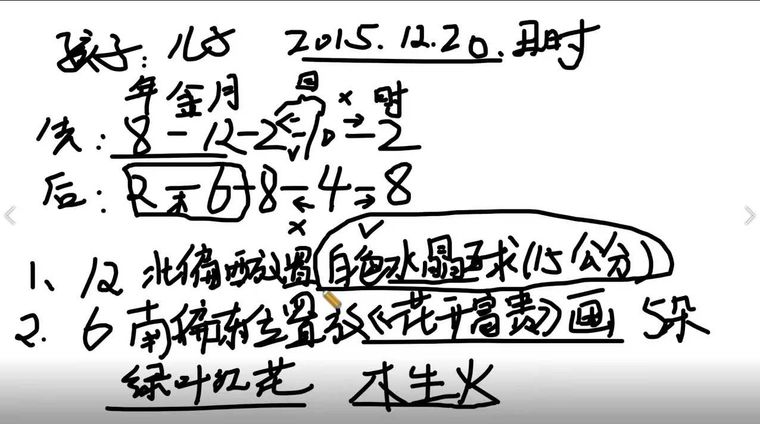 孩子:儿子 2015.12.20.丑时
年 金 月 日 × 时
先:8-12-2-10-2
后:2-6-8-4-8
木 ×
1、12 北偏西放置(白色水晶球(15公分)
2.6南偏东位置放《花开富贵》画 5朵
绿叶红花 木生火